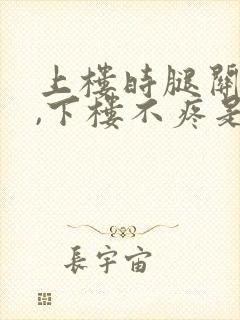 上樓時腿關
,下樓不疼是
長宇宙